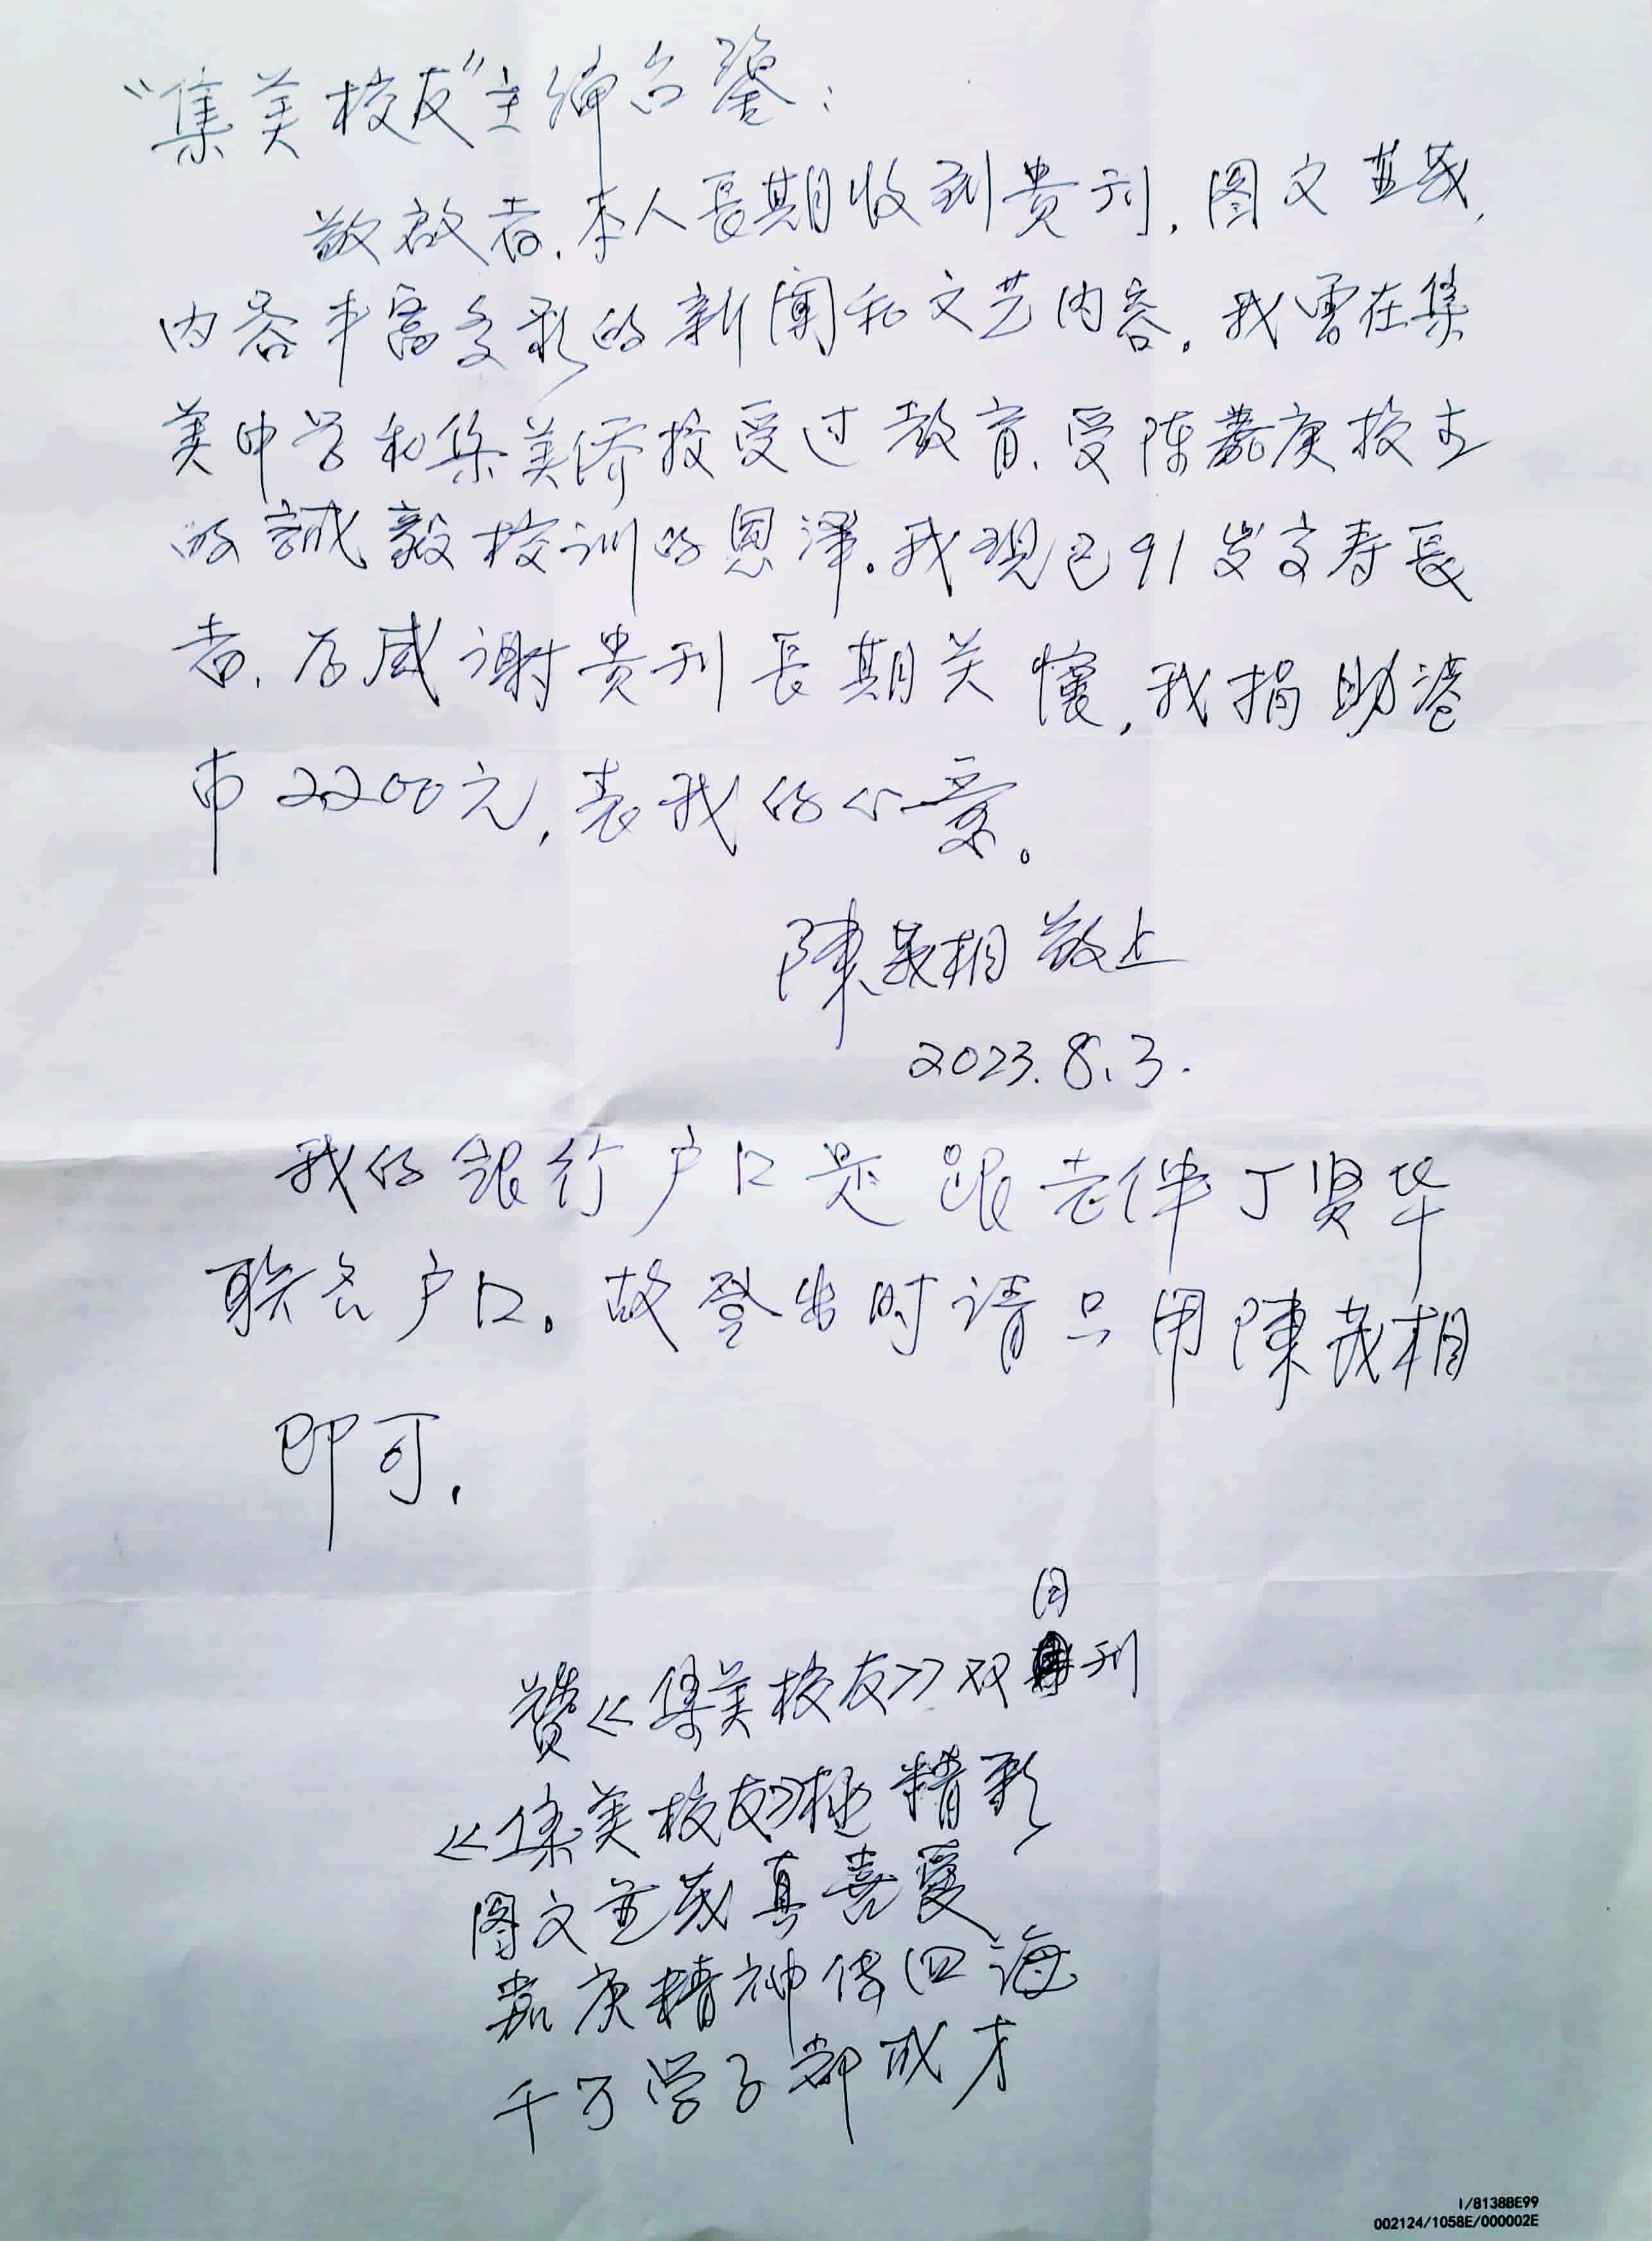 “集美校友”主编台鉴：
敬啟者，本人長期收到贵刊，图文並茂，
内容丰富多彩的新闻和文艺内容。我曾在集
美中学和集美侨校受过教育，受陈嘉庚校主
的誠毅校训的恩泽。我现已91岁高寿長
者，为感谢贵刊長期关懷，我捐助港
币2200元，表我的心意。
陳茂相 敬上
2023.8.3.
我的銀行户口是跟老伴丁贤华
联名户口。故登出时请只用陳茂相
即可，
月
赞《集美校友》双刊
《集美校友》極精彩
图文並茂真喜愛
嘉庚精神传四海
千万学子都成才
I/8138BE99
002124/1058E/000002E